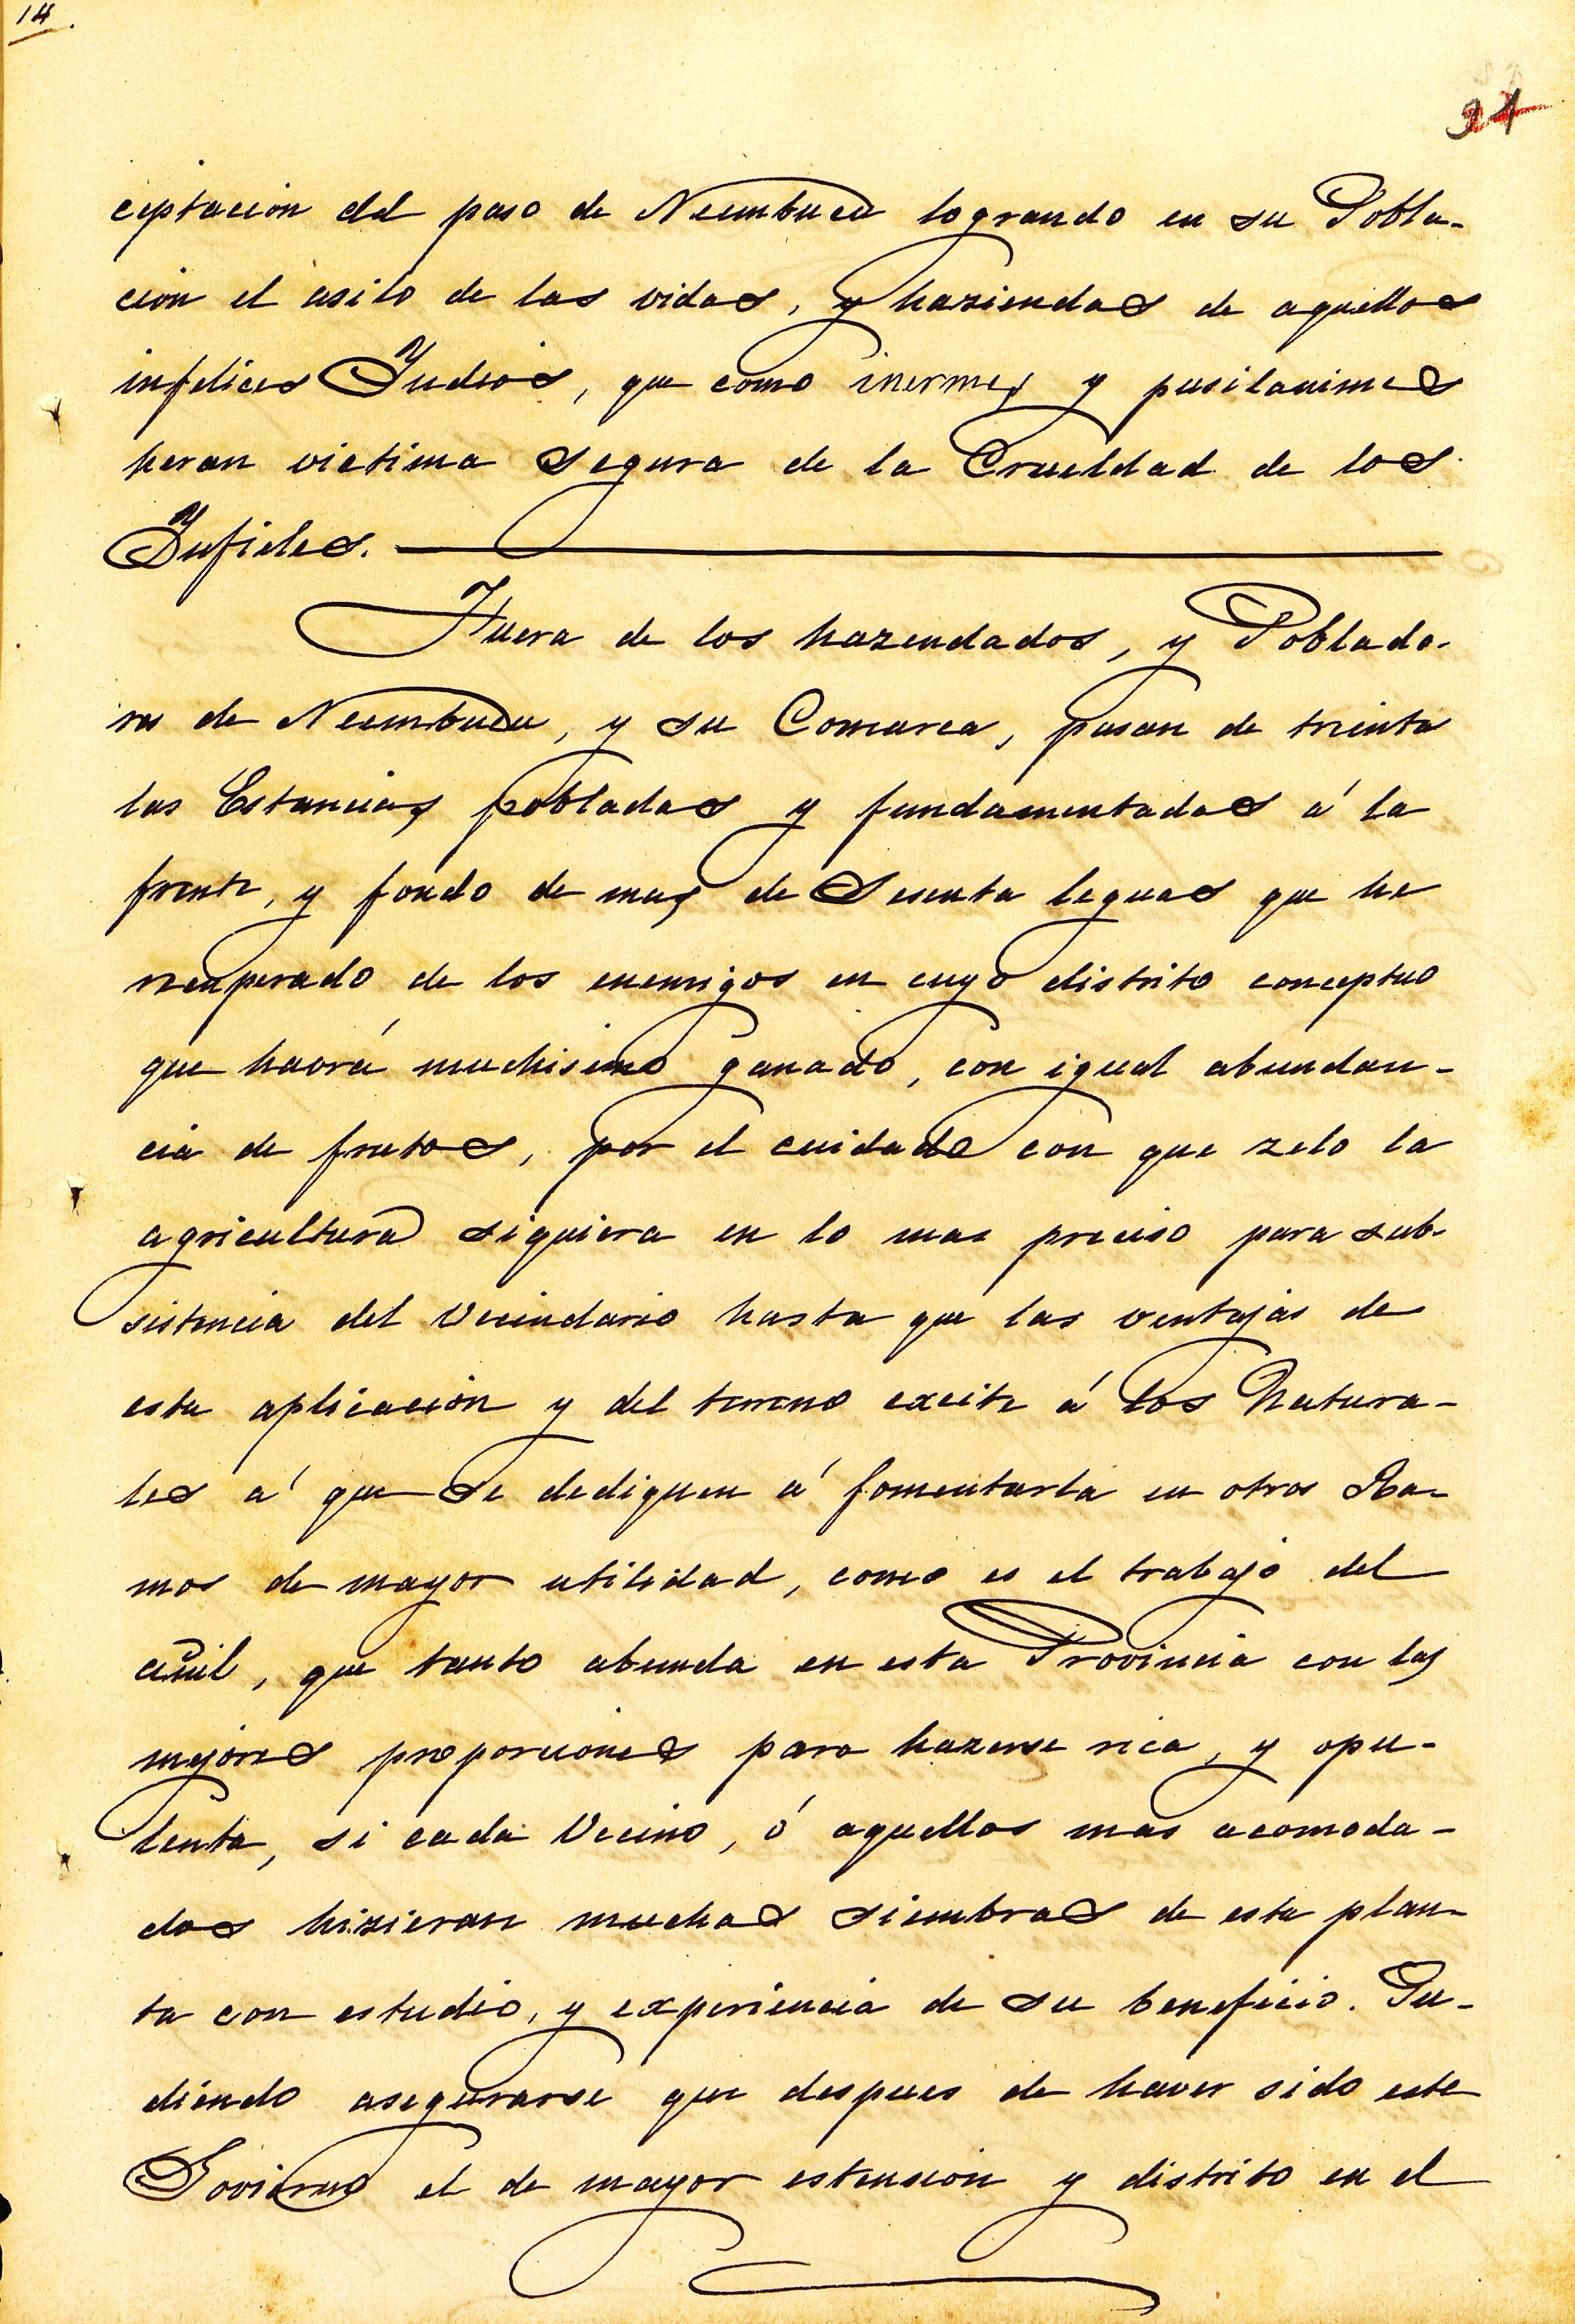 14.
91
ceptacion del paso de Neembucu logrando en su Pobla-
cion el asilo de las vidas, y haziendas de aquellos
infelices Yndios, que como inermes y pusilanimes
heran victima segura de la Crueldad de los
Ynfieles.
Fuera de los hazendados, y Poblado-
res de Neembucu, y su Comarca, pasan de treinta
las Estancias pobladas y fundamentadas á la
frente, y fondo de mas de Sesenta leguas que he
recuperado de los enemigos en cuyo distrito conceptuo
que havrá muchisimo ganado, con igual abundan-
cia de frutos, por el cuidado con que zelo la
agricultura siquiera en lo mas preciso para sub-
sistencia del Vecindario hasta que las ventajas de
esta aplicacion y del terreno excite á los Natura-
les á que se dediquen á fomentarla en otros Ra-
mos de mayor utilidad, como es el trabajo del
añil, que tanto abunda en esta Provincia con las
mejores proporciones para hazerse rica, y opu-
lenta, si cada Vecino, ó aquellos mas acomoda-
dos hizieran muchas siembras de esta plan-
ta con estudio, y experiencia de su beneficio. Pu-
diendo asegurarse que despues de haver sido este
Govierno el de mayor estension y distrito en el